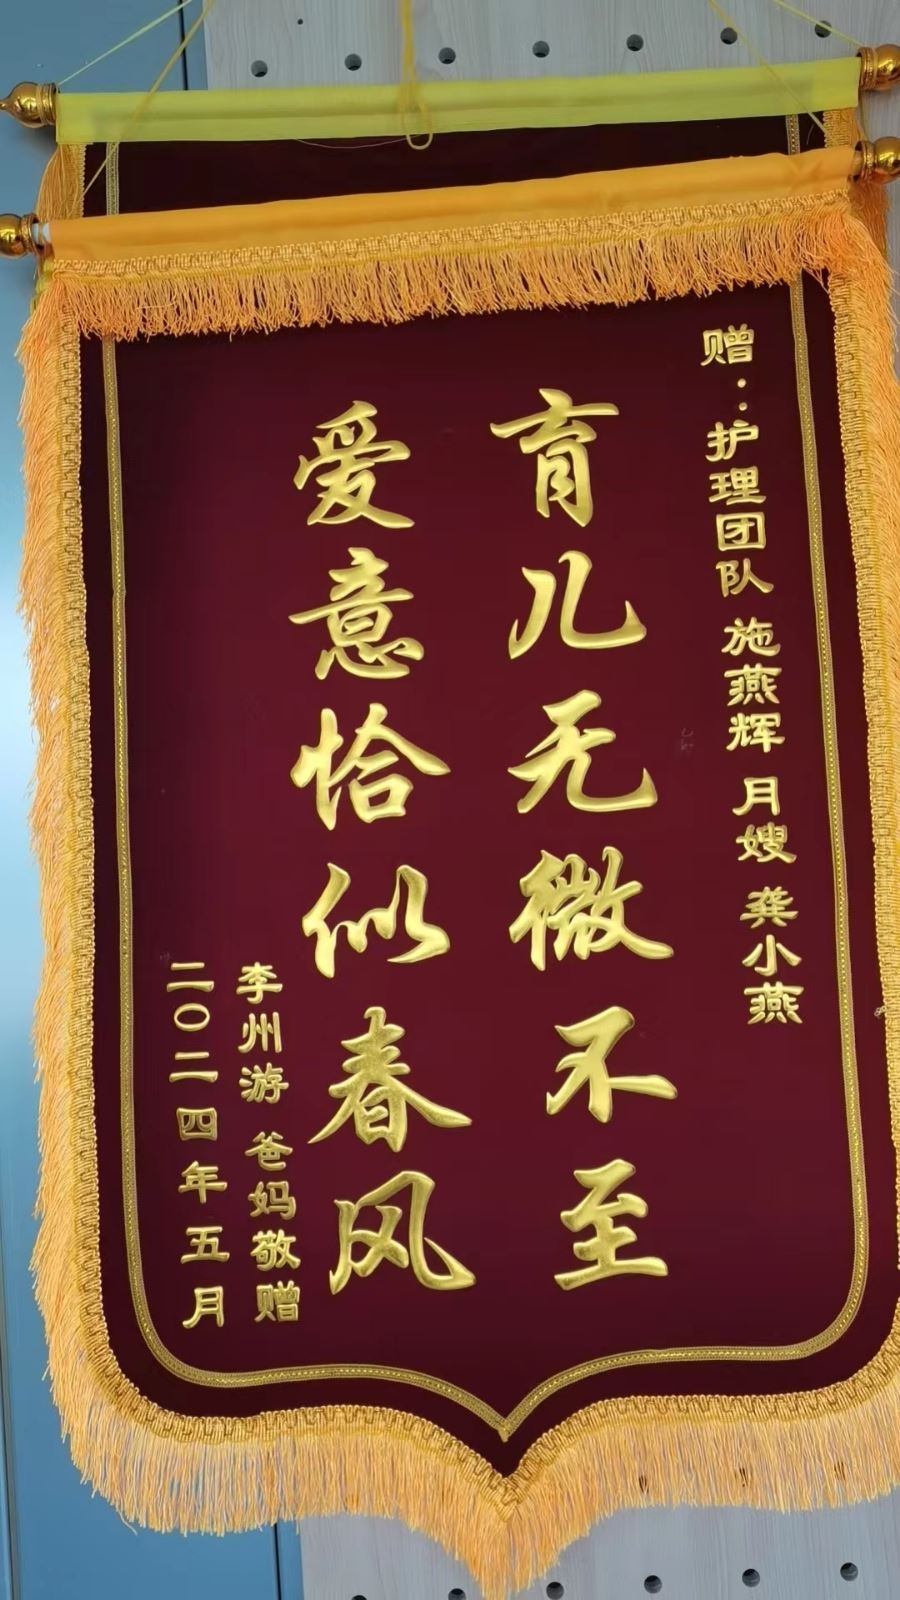 赠：护理团队 施燕辉 月嫂 龚小燕
育儿无微不至
爱意恰似春风
李州游 爸妈敬赠
二〇二四年五月